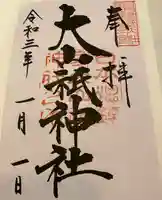 奉拝
大山祇神社
令和三年
一月一日